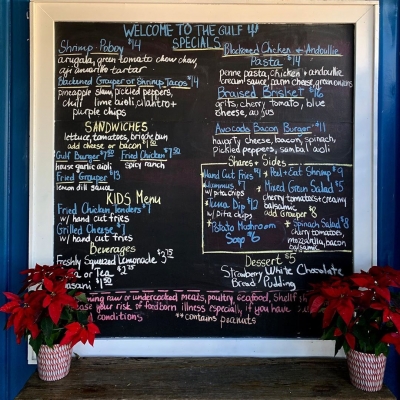 WELCOME TO THE GULF
SPECIALS
Shrimp Poboy $14
arugala, green tomato chow chow,
aji amarillo tartar
Blackened Grouper or Shrimp Tacos $14
pineapple slaw, pickled peppers,
chili lime aioli cilantro +
purple chips
SANDWICHES
lettuce, tomatoes, brioche bun
add cheese or bacon $1
Gulf Burger
house garlic aioli
Fried Chicken
spicy ranch
Fried Grouper $13
lemon dill sauce
KIDS Menu
Fried Chicken tenders $7
w/ hand cut fries
Grilled Cheese $7
w/ hand cut fries
Beverages
Freshly Squeezed Lemonade $3.75
or Tea
Dasani
Blackened Chicken + Andouille
Pasta $14
penne pasta, chicken + andouille
cream sauce, parm cheese, green onions
Braised Brisket $16
grits, cherry tomato, blue
cheese, au jus
Avocado Bacon Burger $11
havarty cheese, bacon, spinach,
pickled peppers, sambal aioli
Shares + Sides
Hand Cut Fries $4
Hummus $7
w/ pita chips
Tuna Dip $12
w/ pita chips
Potato Mushroom
Soup $6
Peel + Eat Shrimp $9
Mixed Green Salad $5
Cherry tomatoes + creamy
balsamic
add Grouper $8
Spinach Salad $8
cherry tomatoes,
mozzarella, bacon
balsamic
Dessert $5
Strawberry White Chocolate
Bread Pudding
raw or undercooked meats, poultry, seafood, shellfish
your risk of foodborn illness especially if you have
conditions **contains peanuts